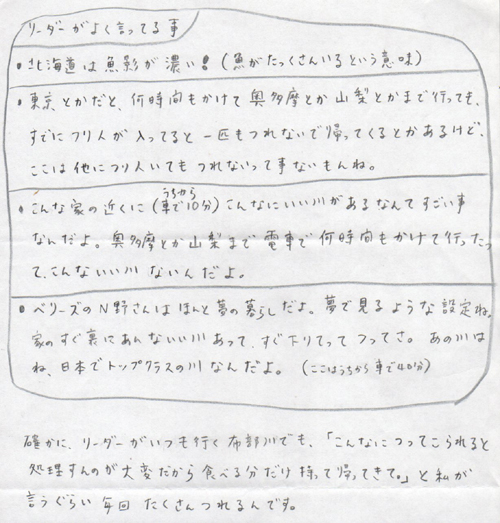 リーダーがよく言ってる事
・北海道は魚影が濃い！（魚がたっくさんいるという意味）
・東京とかだと、何時間もかけて奥多摩とか山梨とかまで行っても、
すでにつり人が入ってると一匹もつれないで帰ってくるとかあるけど、
ここは他につり人いてもつれないって事ないもんね。
うちから
・こんな家の近くに（車で10分）こんなにいい川があるなんてすごい事
なんだよ。奥多摩とか山梨まで電車で何時間もかけて行ったっ
て、こんないい川ないんだよ。
・ベリーズのN野さんはほんと夢の暮らしだよ。夢で見るような設定ね。
家のすぐ裏にあんないい川あって、すぐ下りてってつってさ。あの川は
ね、日本でトップクラスの川なんだよ。（ここはうちから車で40分）
確かに、リーダーがいつも行く布部川でも、「こんなにつってこられると
処理すんのが大変だから食べる分だけ持って帰ってきて。」と私が
言うぐらい毎回たくさんつれるんです。